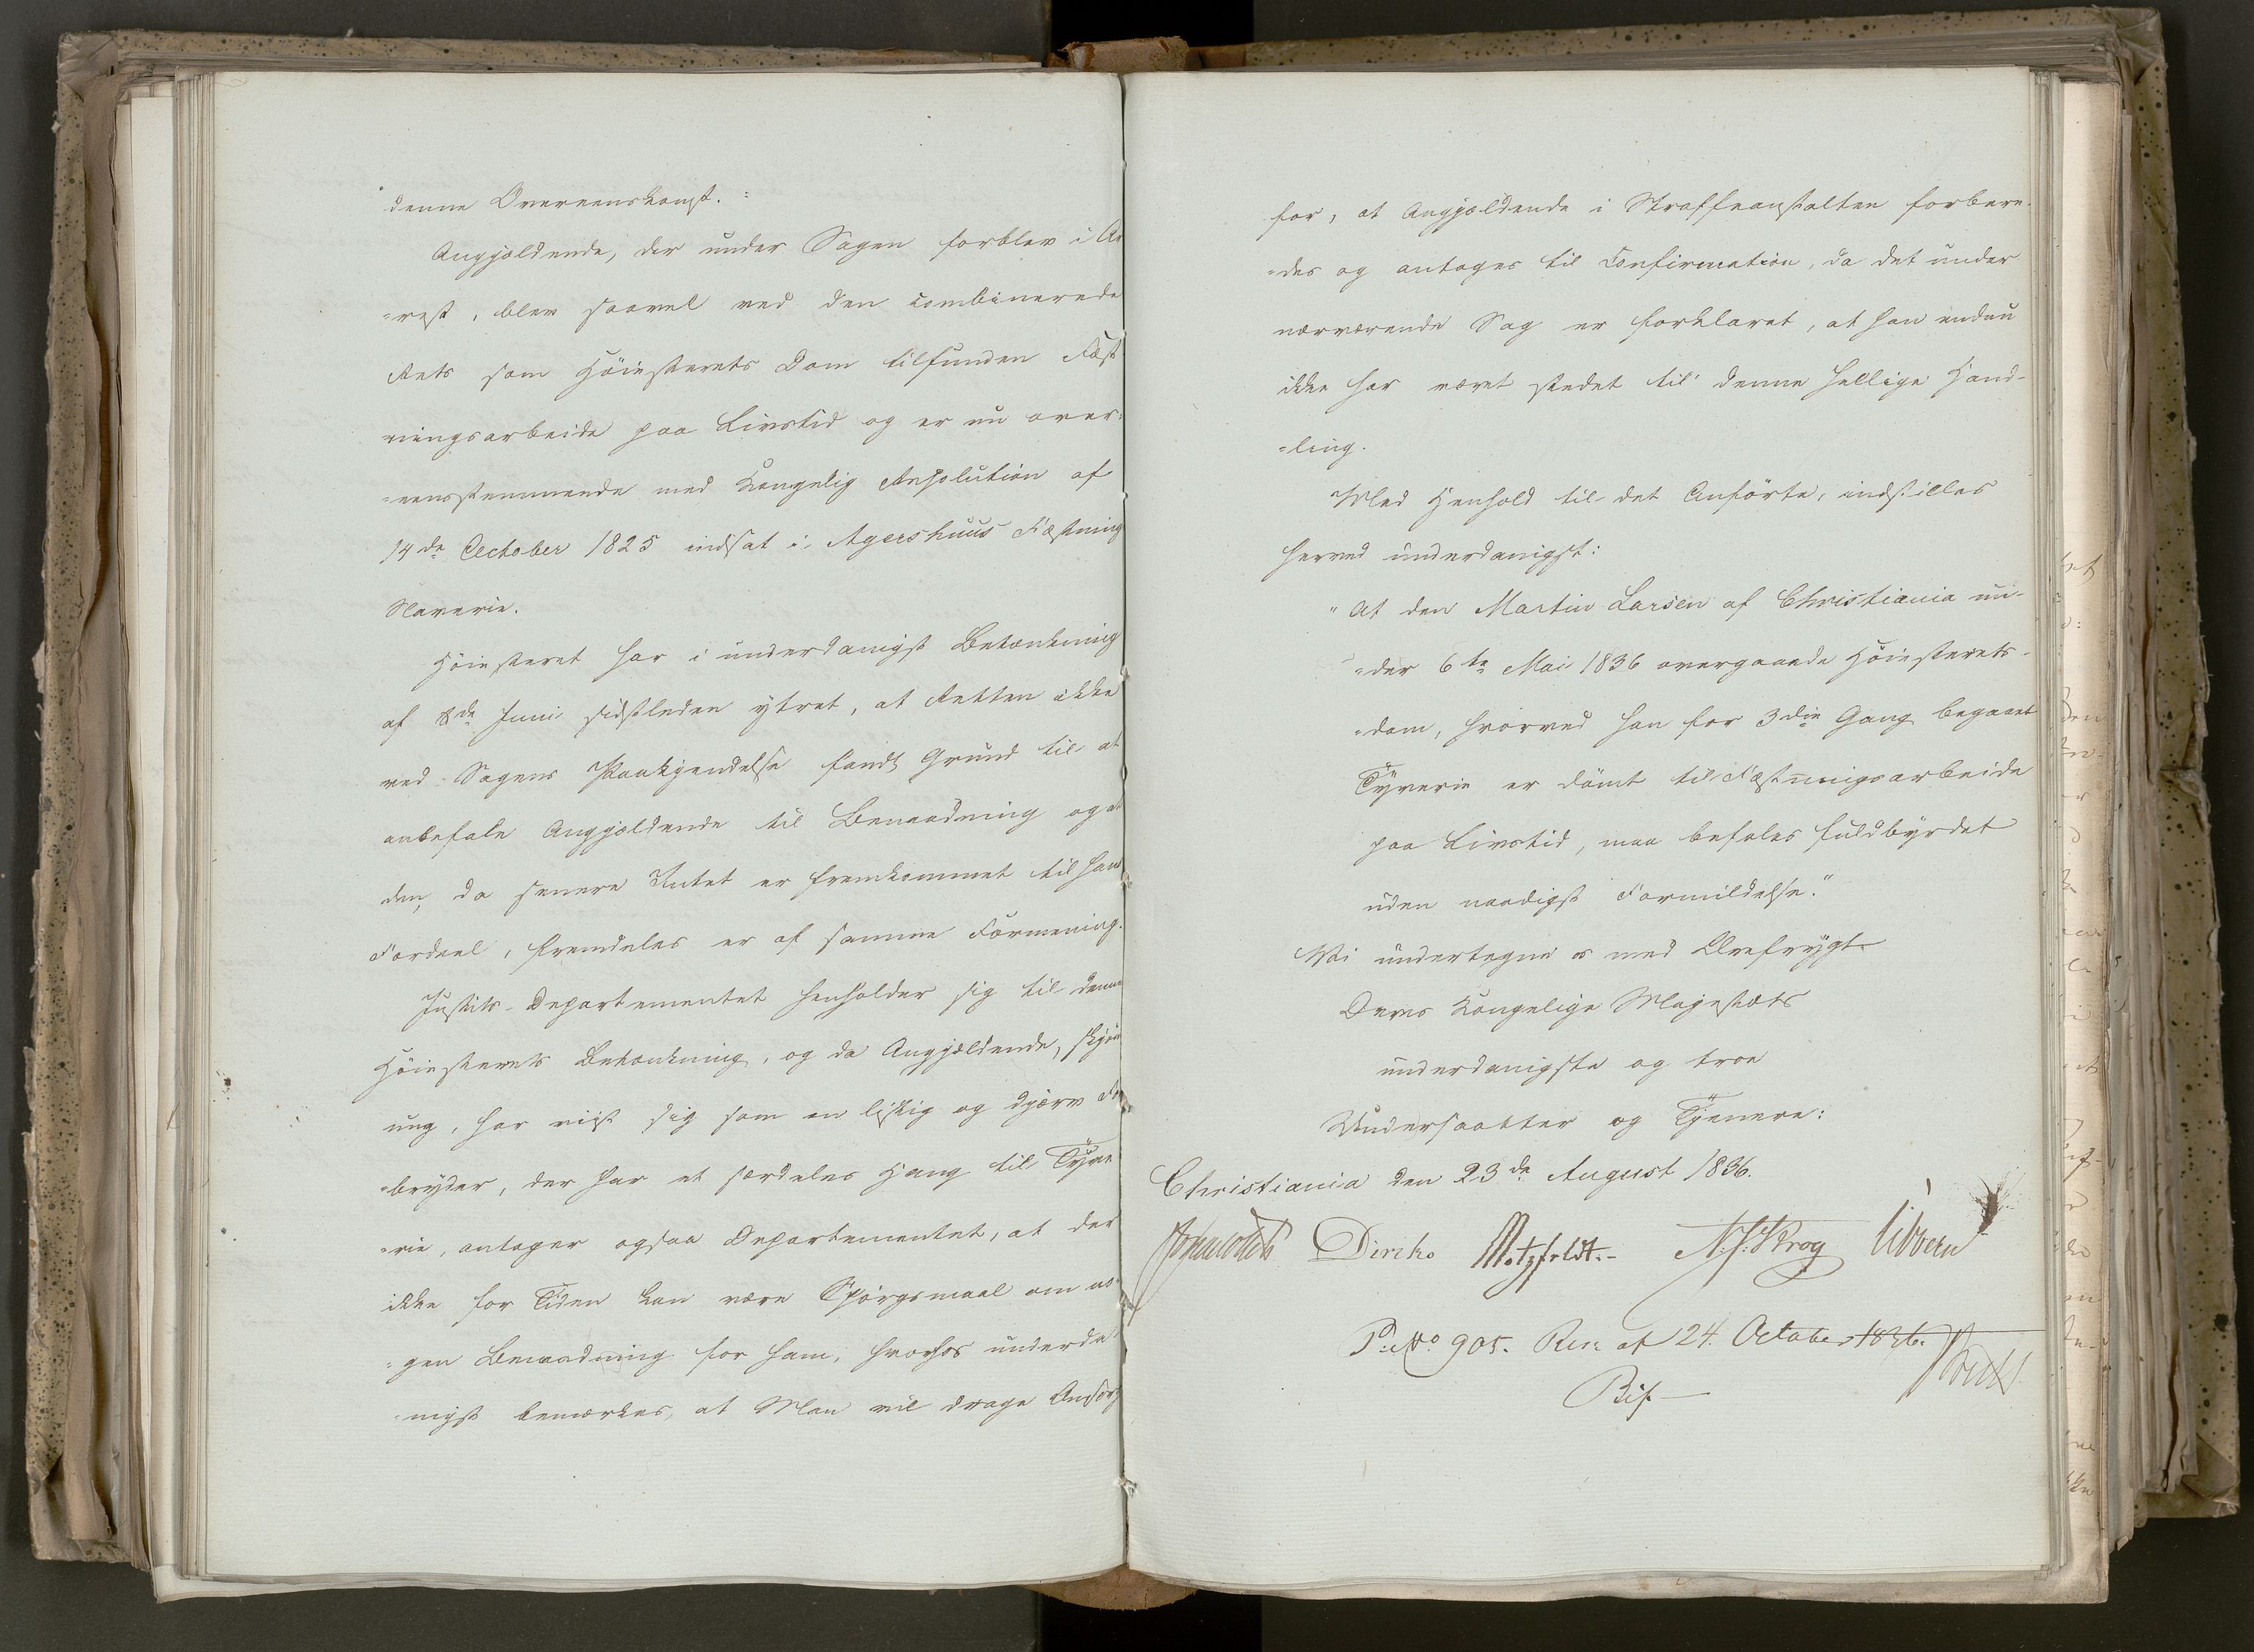 denne Overeenskomst.
Angjældende, der under Sagen forblev i Ar
=rest, blev saavel ved den combinerede
Rets som Høiesterets Dom tilfunden Fæst
ningsarbeide paa Livstid og er nu over:
=eensstemmende med Kongelig Resolution af
14de October 1825 indsat i Agershuus Fæstning
Slaverie.
Høiesteret har i underdanigst Betænkning
af 8de Juni sidstleden ytret, at Retten ikke
ved Sagens Paakjendelse fandt Grund til at
anbefale Angjældende til Benaadning og at
den, da senere Intet er fremkommet til hans
Fordeel, fremdeles er af samme Formening.
Justits-Departementet henholder sig til denne
Høiesterets Betænkning, og da Angjældende, skjøn
ung, har viist sig som en listig og djærv For
=bryder, der har et særdeles Hang til Tyve
=rie, antager ogsaa Departementet, at der
ikke for Tiden kan være Spørgsmaal om no
=gen Benaadning for ham, hvorhos underda
=nigst bemærkes, at Man vil drage Omsorg
for, at Angjældende i Straffeanstalten forbere-
=des og antages til Confirmation, da det under
nærværende Sag er forklaret, at han endnu
ikke har været stedet til denne hellige Hand-
=ling.
Med Henhold til det Anførte, indstilles
herved underdanigst:
"At den Martin Larsen af Christiania un-
=der 6te Mai 1836 overgaaede Høiesterets-
=dom, hvorved han for 3die Gang begaaet
Tyverie er dømt til Fæstningsarbeide
paa Livstid, maa befales fuldbyrdet
uden naadigst Formildelse."
Vi undertegne os med Ærefrygt
Deres Kongelige Majestæts
underdanigste og troe
Undersaatter og Tjenere:
Christiania den 23de August 1836.
Diriks Motzfeldt. N. J. Krog Vibbern
P: No 905. Res: af 24. October 1836.